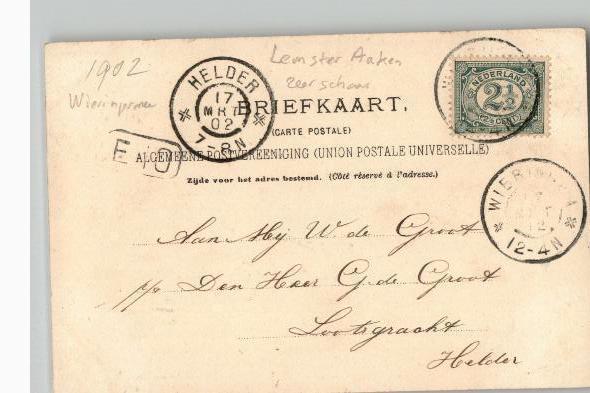 1902
Wieringermeer
Lemster Aaken
zeer schaars
HELDER
17
MRT
02
7-8N
NEDERLAND
2½
(2½ CENT)
BRIEFKAART.
(CARTE POSTALE)
ALGEMEENE POSTVEREENIGING (UNION POSTALE UNIVERSELLE)
Zijde voor het adres bestemd. (Côté réservé à l'adresse.)
WIERINGEN
12-4N
Aan Mej W de Groot
p/a Den Heer G. de Groot
Lootsgracht
Helder